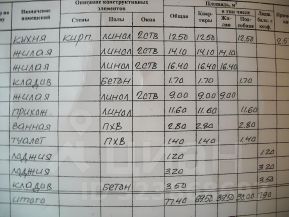 Назначение помещений
Описание конструктивных элементов
Площадь, м²
в том числе
Стены Полы Окна Общая
кухня кирп. линол 2ств 12.50 12.50 12.50
жилая линол 2ств 14.10 14.10 14.10
жилая линол 2ств 16.40 16.40 16.40
кладов бетон 1.70 1.70 1.70
жилая линол 2ств 9.00 9.00 9.00
прихож. линол 11.60 11.60 11.60
ванная ПХВ 2.80 2.80 2.80
туалет ПХВ 1.40 1.40 1.40
лоджия 1.20 1.20
лоджия 3.20 3.20
кладов бетон 3.50 3.50
итого 77.40 69.50 39.50 30.00 7.90